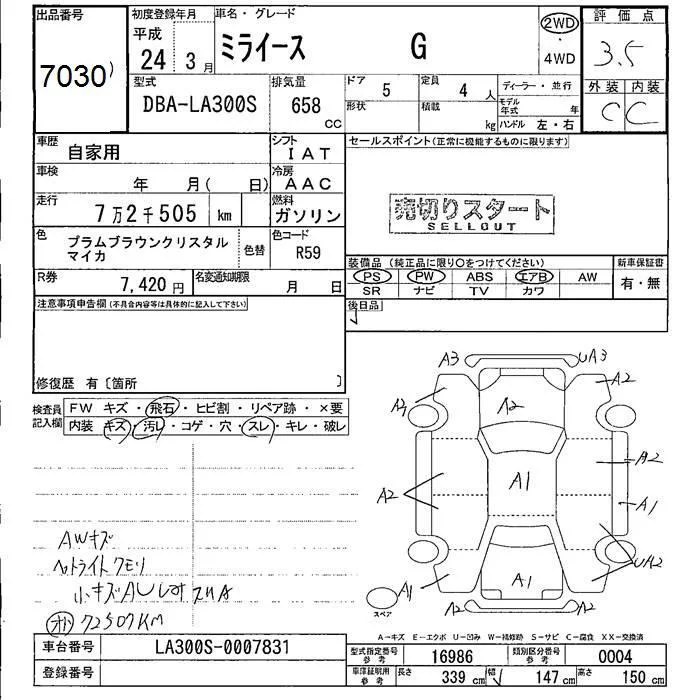 出品番号 初度登録年月 車名・グレード 評価点
7030
平成
24 3月 ミライース G 2WD 4WD 3.5
型式 排気量 ドア 5 定員 4人 ディーラー・並行 外装 内装
DBA-LA300S 658 cc 形状 積載 kg モデル年式 年 ハンドル 左・右 C C
車歴 自家用 シフト IAT セールスポイント(正常に機能するものに限ります)
車検 年 月( 日) 冷房 AAC
走行 7万2千505 km 燃料 ガソリン
売切りスタート
SELLOUT
色 プラムブラウンクリスタル
マイカ 色替 色コード R59
装備品 (純正品に限り○をつけてください) 新車保証書
R券 7,420円 名変通知期限 月 日 PS PW ABS エアB AW 有・無
SR ナビ TV カワ
注意事項申告欄(不具合内容等は具体的に記入して下さい) 後日品
修復歴 有〔箇所 〕
検査員 FW キズ・飛石・ヒビ割・リペア跡・×要
記入欄 内装 キズ・汚レ・コゲ・穴・スレ・キレ・破レ
A3 UA3
A2 A2 A2
A2 A1 A2
A1
UA2
A1 A1
A2 A2
スペア
AWキズ
ヘットライトクモリ
小キズAU
72507KM
A-キズ E-エクボ U-凹み W-補修跡 S-サビ C-腐食 XX-交換済
車台番号 LA300S-0007831 型式指定番号 参考 16986 類別区分番号 参考 0004
登録番号 車庫証明用 参考 長さ 339cm 幅 147cm 高さ 150cm